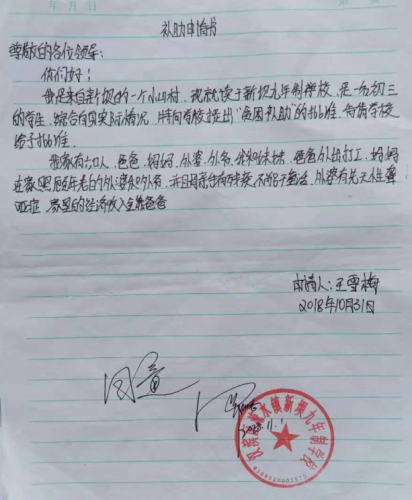 年 月 日
补助申请书
尊敬的各位领导:
你们好!
我是来自新坝的一个小山村,现就读于新坝九年制学校,是一九初三
的学生,综合自身实际情况,特向学校提出“贫困补助”的批准,句俱学校
给予批准.
我家有六口人,爸爸,妈妈,外婆,外爷,我和妹妹,爸爸外出打工,妈妈
在家照顾年老的外婆和外爷,并且母亲台有残疾,不能干重活,外婆有先天性聋
哑症,家里的经济收入全靠爸爸
申请人:王雪梅
2018年10月31日
同意
2018.11.1
汉滨区 水镇新坝九年制学校